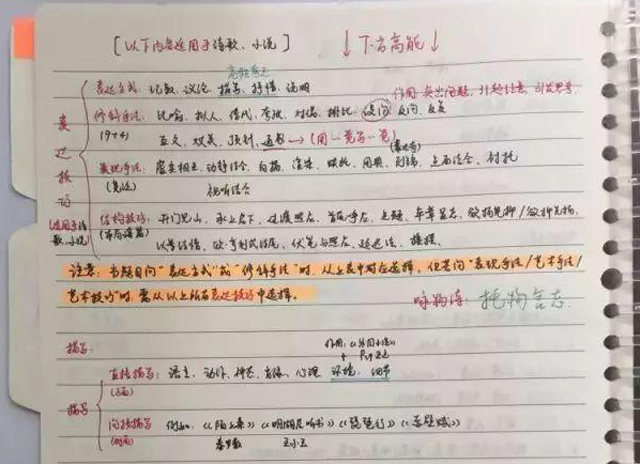 [以下内容适用于诗歌、小说] ↓下方高能↓
表达方式：记叙、议论、描写、抒情、说明
作用：突出问题，引起注意，引发思考。
修辞手法：比喻、拟人、借代、夸张、对偶、排比、设问、反问、反复
(9+4) 互文、双关、顶针、通感→(用一觉写一觉)
表现手法：虚实相生、动静结合、白描、渲染、联想、用典、对比、点面结合、衬托
视听结合
表达技巧
(适用于诗歌、小说)
结构技巧：开门见山、承上启下、过渡照应、首尾呼应、点题、卒章显志、欲扬先抑/欲抑先扬、
以景结情、伏笔与照应、
注意：当题目问"表达方式"或"修辞手法"时，从上表中对应选择，但若问"表现手法/艺术手法/
艺术技巧"时，需从以上所有表达技巧中选择。
咏物诗：托物言志
描写
直接描写：语言、动作、神态、肖像、心理、环境、细节
(正面)
描写
间接描写 例如：《陌上桑》《明湖居听书》《琵琶行》《赤壁赋》
(侧面) 秦罗敷 王小玉